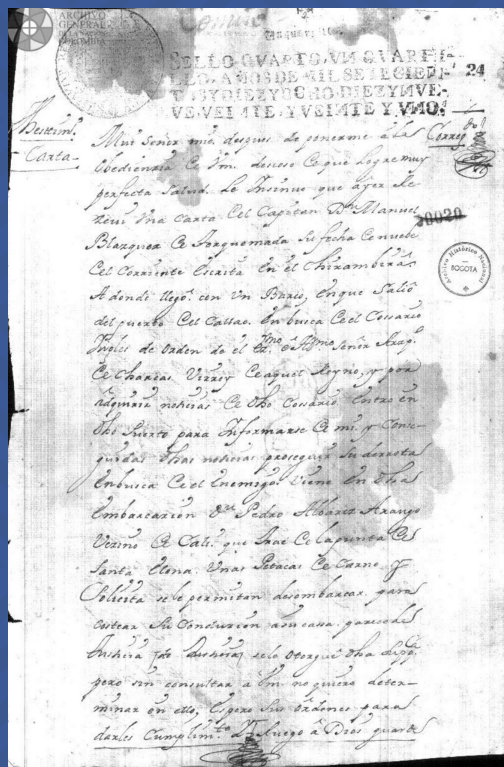 ARCHIVO
GENERAL
COLOMBIA
SELLO QVARTO, VN QVARTI-
LLO, AÑOS DE MIL SETECIEN-
TOS Y DIEZ Y OCHO, DIEZ Y NVE-
VE, VEINTE, Y VEINTE Y VNO.
24
Carta
Correg.dor
Muy Señor mio, despues de ponerme a la
obediencia de Vm. deseoso de que logre muy
perfecta Salud, le Insinuo que ayer re-
ziui Vna carta del Capitan Dn Manuel
Blazquez de Torquemada su fecha de nuebe
del Corriente escrita en el Chirambira
A donde llego con Vn Barco, en que Salio
del puerto del Callao en busca de el Cossario
Ingles de orden de el Exmo Señor Arzpo
de Charcas Virrey de aquel Reyno, y por
adquirir noticias de dho Cossario entro en
dho Puerto para Informarse de mi, y Conse-
guidas dhas noticias proseguir Su derrota
en busca de el Enemigo. Viene en dha
embarcazion Dn Pedro Albarez Arango
Vezino de Cali, que trae de la punta de
Santa Elena Unas Petacas de Carne y
Solicita se le permitan desembarcar, para
costear Su Conduccion a su casa, parece de
Justicia (de Justicia) se le otorgue dha
pero sin consultar a Vm no quiero deter-
minar en ello, espero sus ordenes para
darles Cumplimto. Y Ruego a Dios guarde
00020
Archivo Histórico Nacional
BOGOTA